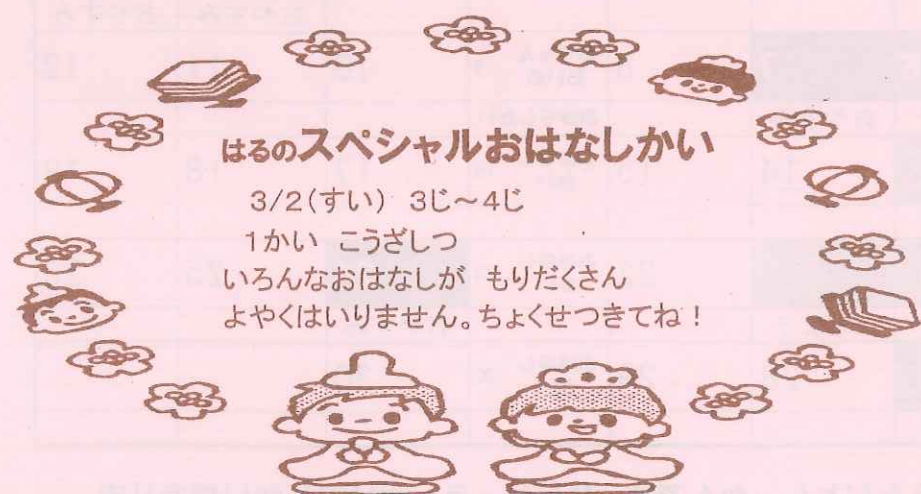 はるのスペシャルおはなしかい
3/2(すい) 3じ～4じ
1かい こうざしつ
いろんなおはなしが もりだくさん
よやくはいりません。ちょくせつきてね！